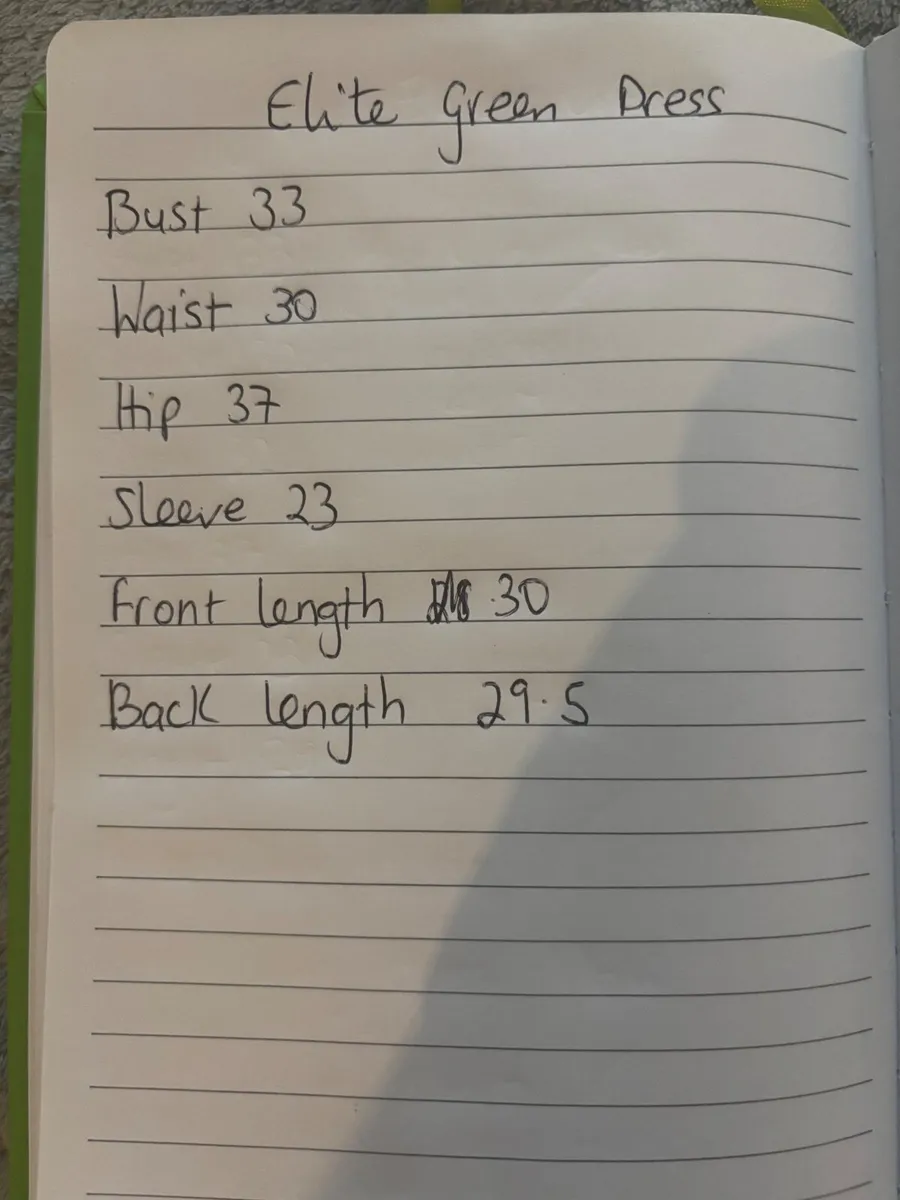 Elite Green Dress
Bust 33
Waist 30
Hip 37
Sleeve 23
Front length 30
Back length 29.5